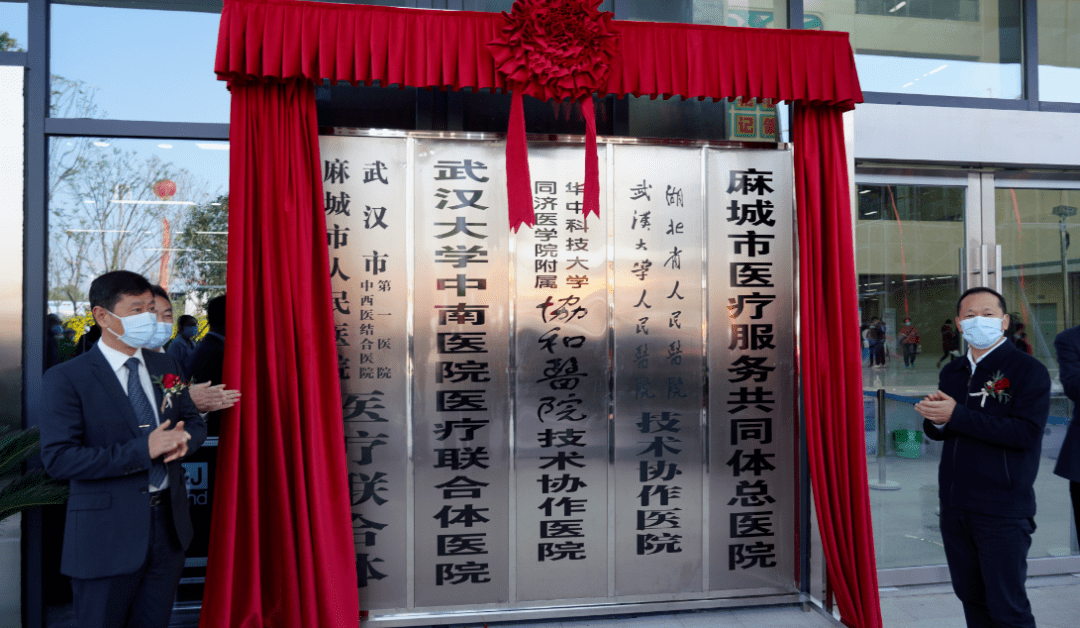 麻城市医疗服务共同体总医院
湖北省人民醫院
武漢大學人民醫院
技术协作医院
华中科技大学
同济医学院附属
協和醫院
技术协作医院
武汉大学中南医院医疗联合体医院
武汉市
第一医院
中西医结合医院
麻城市人民医院
医疗联合体
记